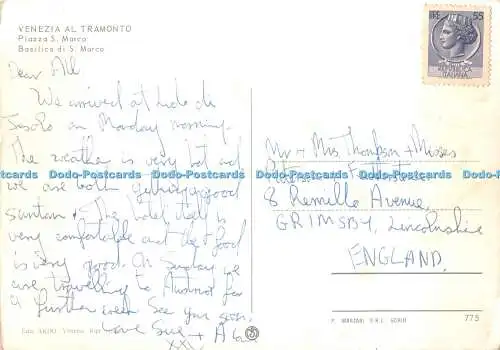 VENEZIA AL TRAMONTO
Piazza S. Marco
Basilica di S. Marco
Dear All
We arrived at Lido di
Jesolo on Monday morning.
The weather is very hot and
we are both getting good
suntan. The hotel itself is
very comfortable and the food
is very good. On Sunday we
are travelling to Austria for
a further week. See you soon.
Love Sue + 
XXX
55
REPUBBLICA
ITALIANA
Mr + Mrs Thompson + Misses
8 Remille Avenue,
GRIMSBY, Lincolnshire
ENGLAND.
Dodo-Postcards Dodo-Postcards Dodo-Postcards Dodo-Postcards Dodo-Postcards
Ediz. ARDO Venezia
775